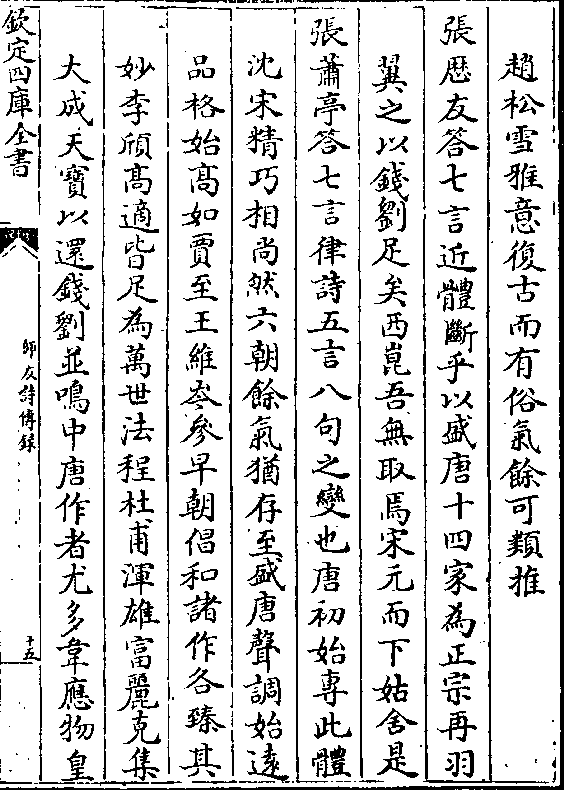 趙松雪雅意復古而有俗氣餘可類推
張歴友答七言近體斷乎以盛唐十四家為正宗再羽
翼之以錢劉足矣西崑吾無取焉宋元而下姑舍是
張蕭亭答七言律詩五言八句之變也唐初始專此體
沈宋精巧相尚然六朝餘氣猶存至盛唐聲調始遠
品格始髙如賈至王維岑參早朝倡和諸作各臻其
妙李頎髙適皆足為萬世法程杜甫渾雄富麗克集
大成天寶以還錢劉並鳴中唐作者尤多韋應物皇
欽定四庫全書
師友詩傳録
十五